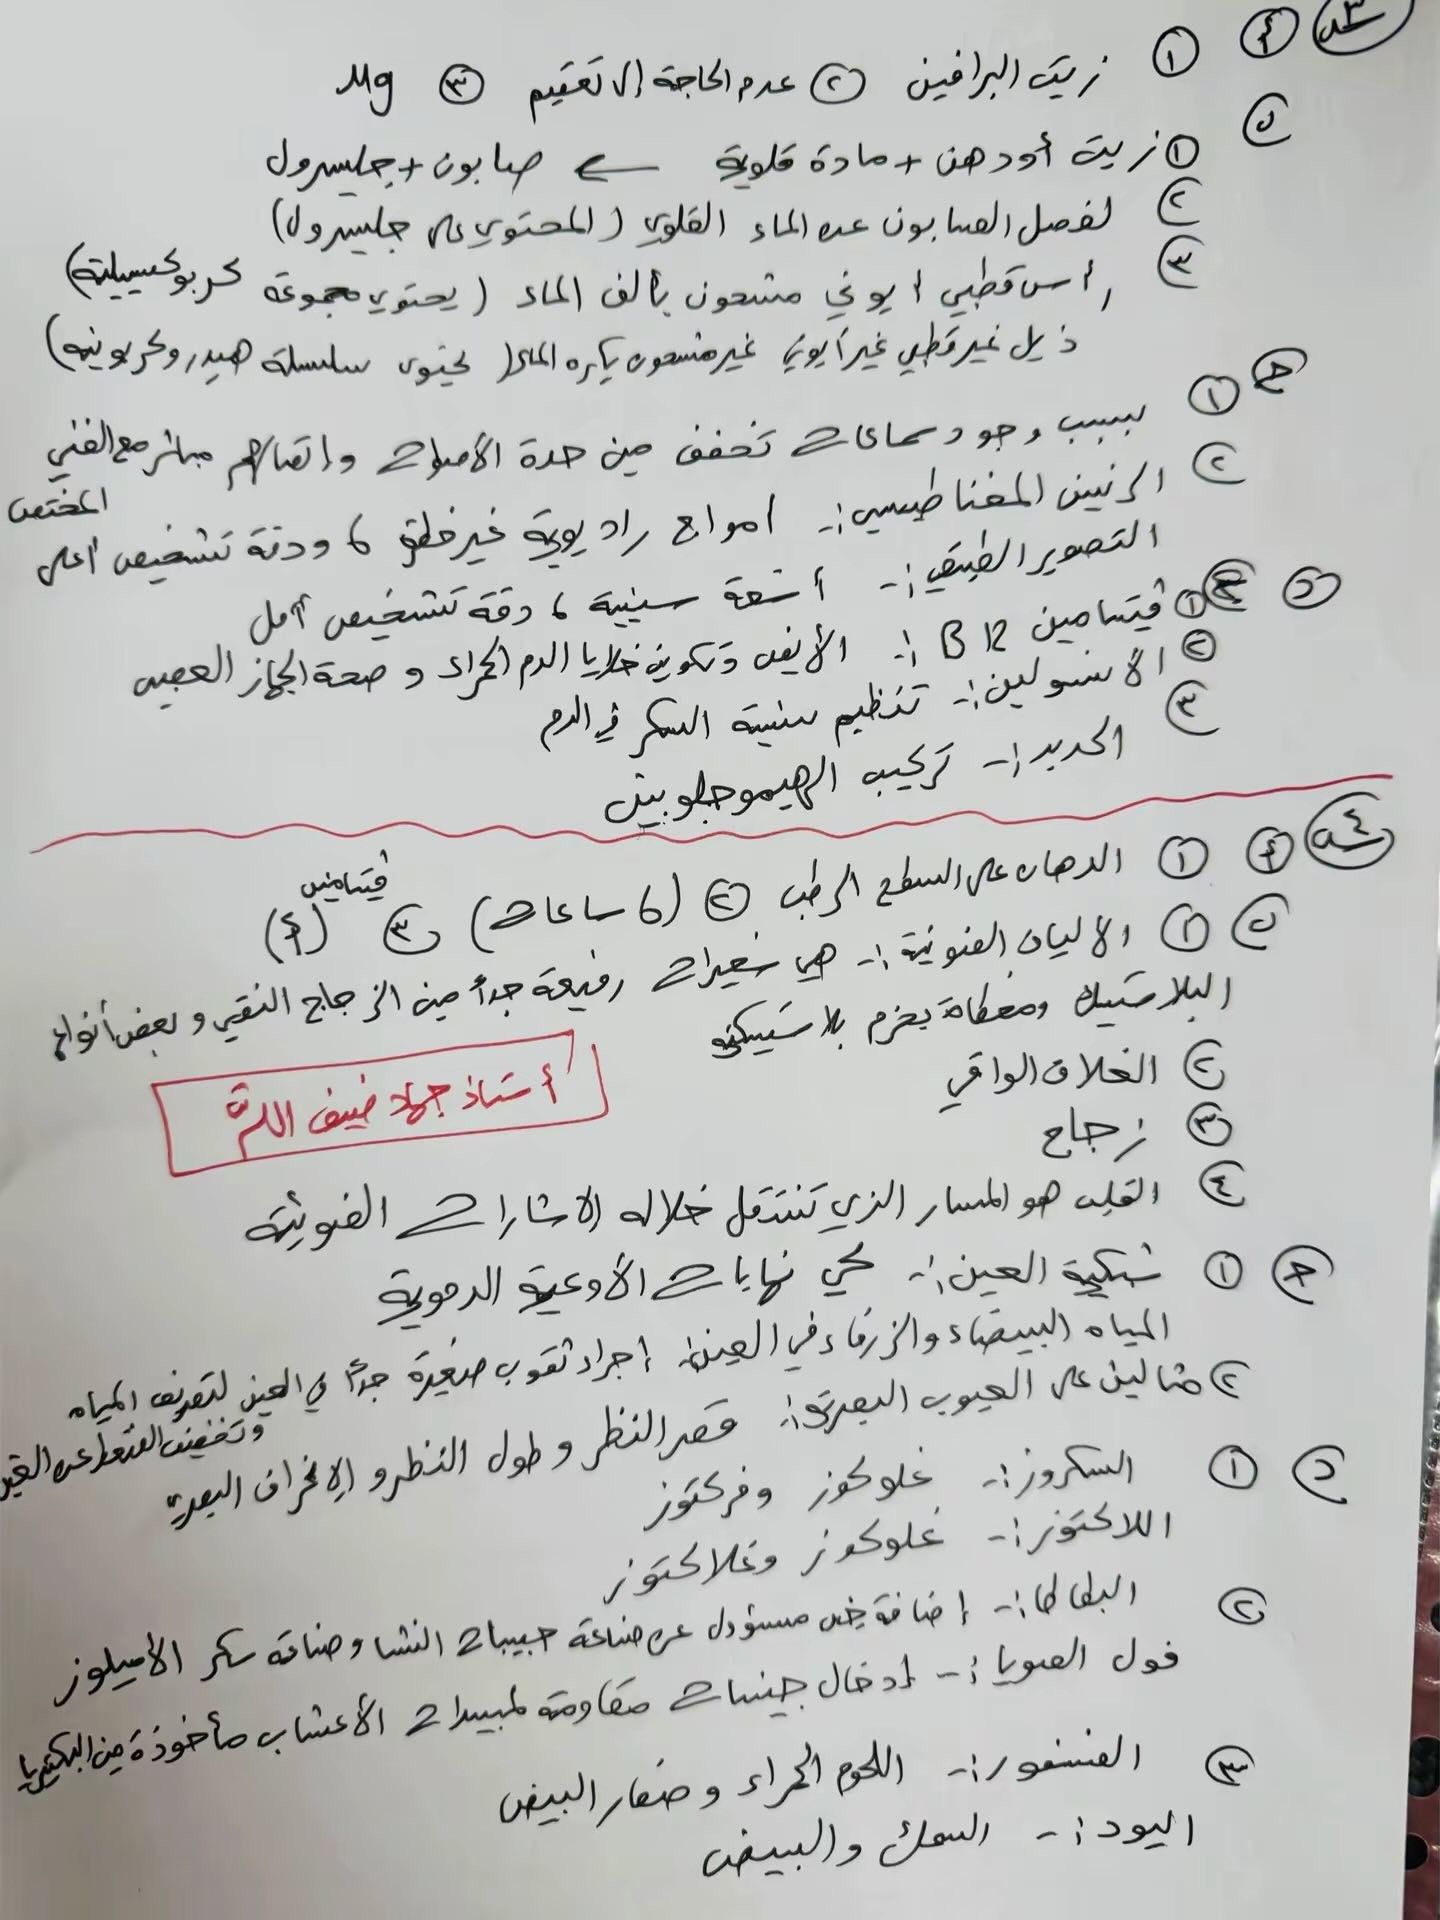 س٣ أ ① زيت البرافين ② عدم الحاجة إلى تعقيم ③ Mg
ب ① زيت أو دهن + مادة قلوية ← صابون + جليسرول
② لفصل الصابون عن الماء القلوي (المحتوي على جليسرول)
③ رأس قطبي أيوني مشحون يألف الماء (يحتوي مجموعة كربوكسيلية)
ذيل غير قطبي غير أيوني غير مشحون يكره الماء (يحتوي سلسلة هيدروكربونية)
ج ① بسبب وجود سماعات تخفف من حدة الأصوات واتصالهم مباشر مع الفني المختص
② الرنين المغناطيسي :- امواج راديوية غير خطرة ، ودقة تشخيص أعلى
التصوير الطبقي :- أشعة سينية ، دقة تشخيص أقل
د ① فيتامين B12 :- الأيض وتكوين خلايا الدم الحمراء وصحة الجهاز العصبي
② الأنسولين :- تنظيم نسبة السكر في الدم
③ الحديد :- تركيب الهيموجلوبين
س٤ أ ① الدهان على السطح الرطب ② (6 ساعات) ③ فيتامين (أ)
ب ① الالياف الضوئية :- هي شعيرات رفيعة جداً من الزجاج النقي وبعض أنواع
البلاستيك ومغطاة بحزم بلاستيكية
② الغلاف الواقي
③ زجاج
④ القلب هو المسار الذي تنتقل خلاله الاشارات الضوئية
أستاذ جهاد ضيف الله
ج ① شبكية العين :- كي نهايات الأوعية الدموية
المياه البيضاء والزرقاء في العين :- إجراء ثقوب صغيرة جداً في العين لتصريف المياه
وتخفيف الضغط عن
② مثالين على العيوب البصرية :- قصر النظر وطول النظر والانحراف البصري
د ① السكروز :- غلوكوز وفركتوز
اللاكتوز :- غلوكوز وغلاكتوز
② البطاطا :- إضافة جين مسؤول عن صناعة حبيبات النشا وصناعة سكر الأميلوز
فول الصويا :- إدخال جينات مقاومة لمبيدات الأعشاب مأخوذة من البكتيريا
③ الفسفور :- اللحوم الحمراء وصفار البيض
اليود :- السمك والبيض